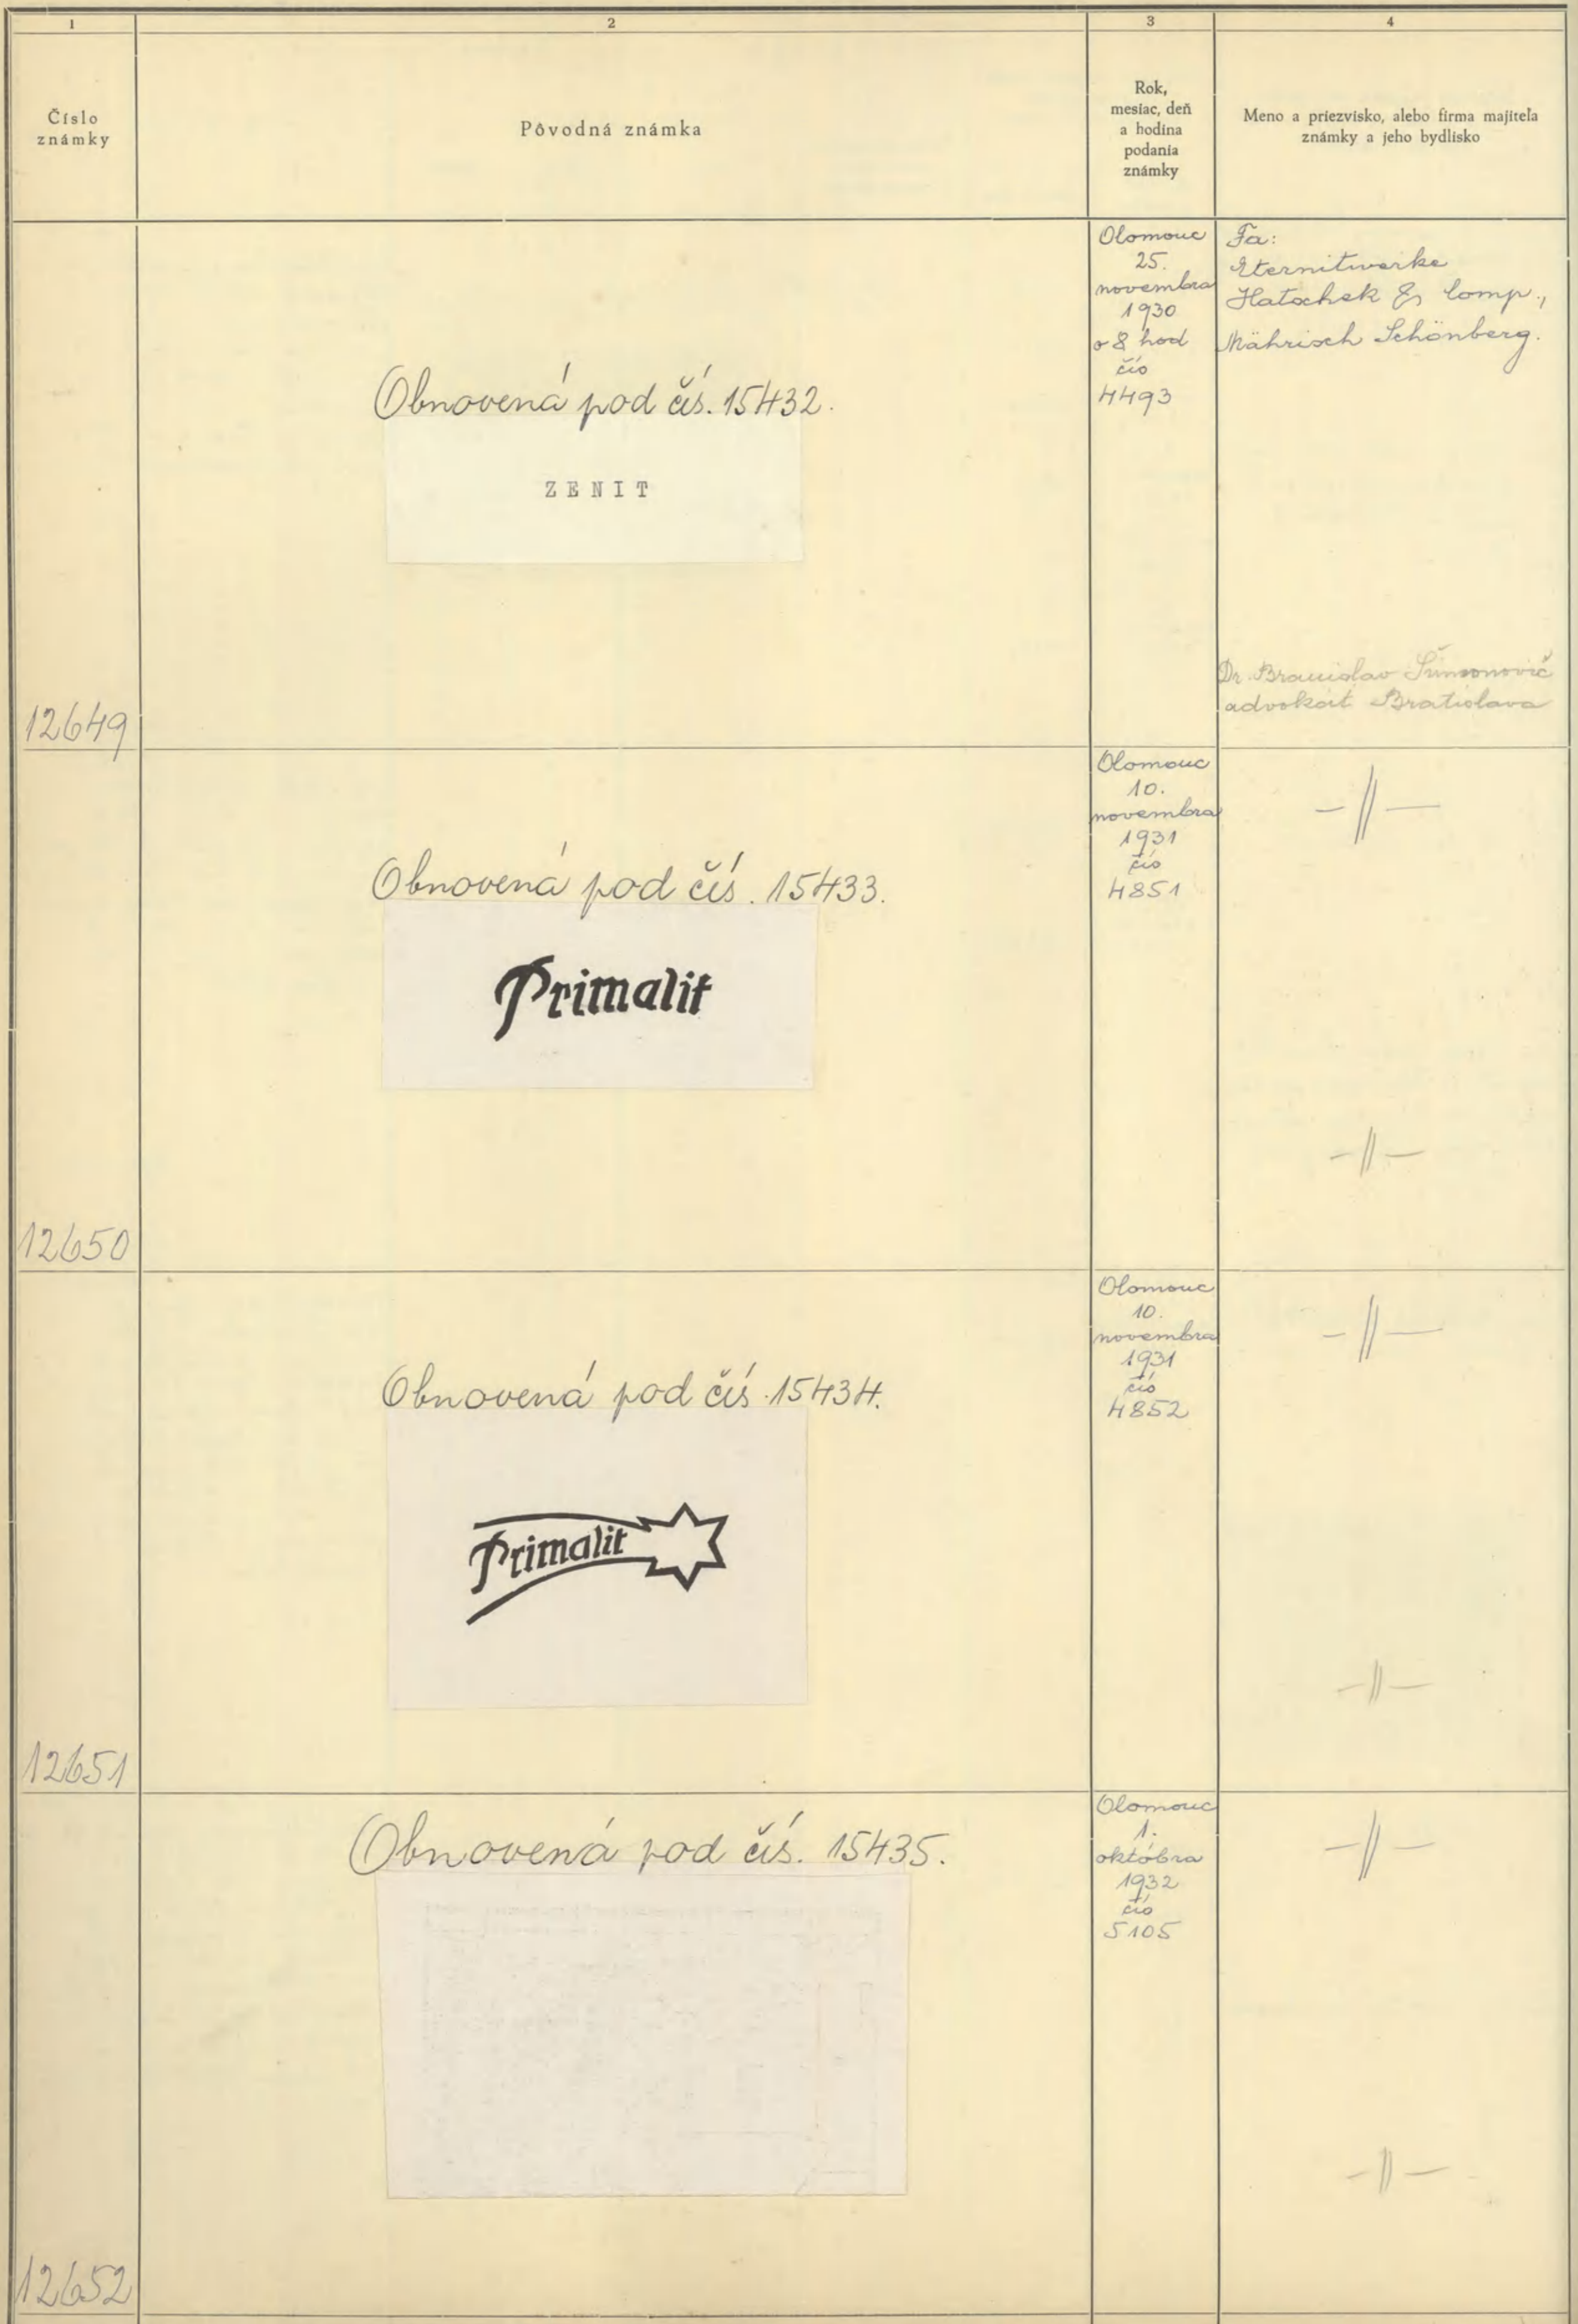 1
2
3
4
Číslo
známky
Pôvodná známka
Rok,
mesiac, deň
a hodina
podania
známky
Meno a priezvisko, alebo firma majiteľa
známky a jeho bydlisko
12649
Obnovená pod čís. 15432.
ZENIT
Olomouc
25.
novembra
1930
o 8 hod
čís
4493
Fa:
Eternitwerke
Hatschek & Comp.,
Mährisch Schönberg.
Dr. Branislav
advokát Bratislava
12650
Obnovená pod čís. 15433.
Primalit
Olomouc
10.
novembra
1931
čís
4851
-||-
-||-
12651
Obnovená pod čís. 15434.
Primalit
Olomouc
10.
novembra
1931
čís
4852
-||-
-||-
12652
Obnovená pod čís. 15435.
Olomouc
1.
októbra
1932
čís
5105
-||-
-||-